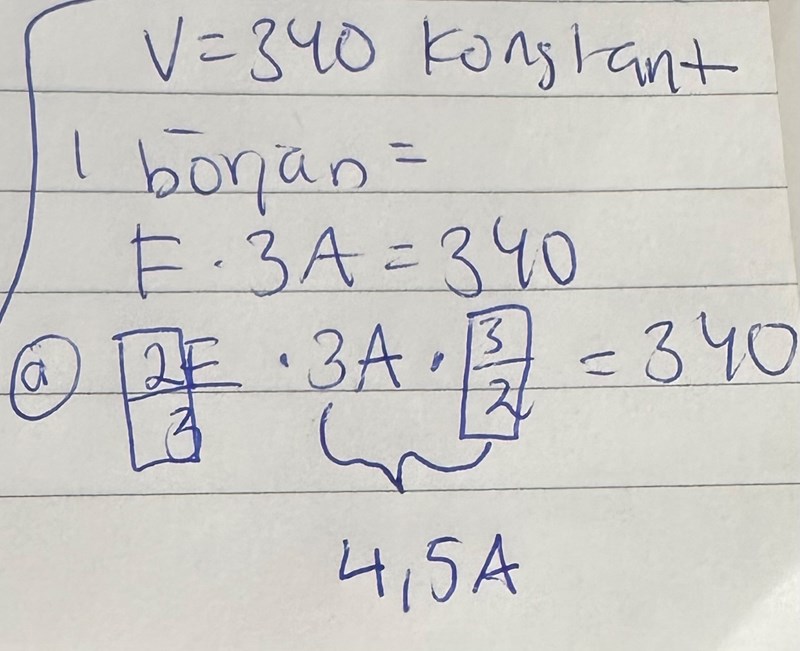 V=340 konstant
I början =
F · 3A = 340
a 2F/3 · 3A · 3/2 = 340
4,5A